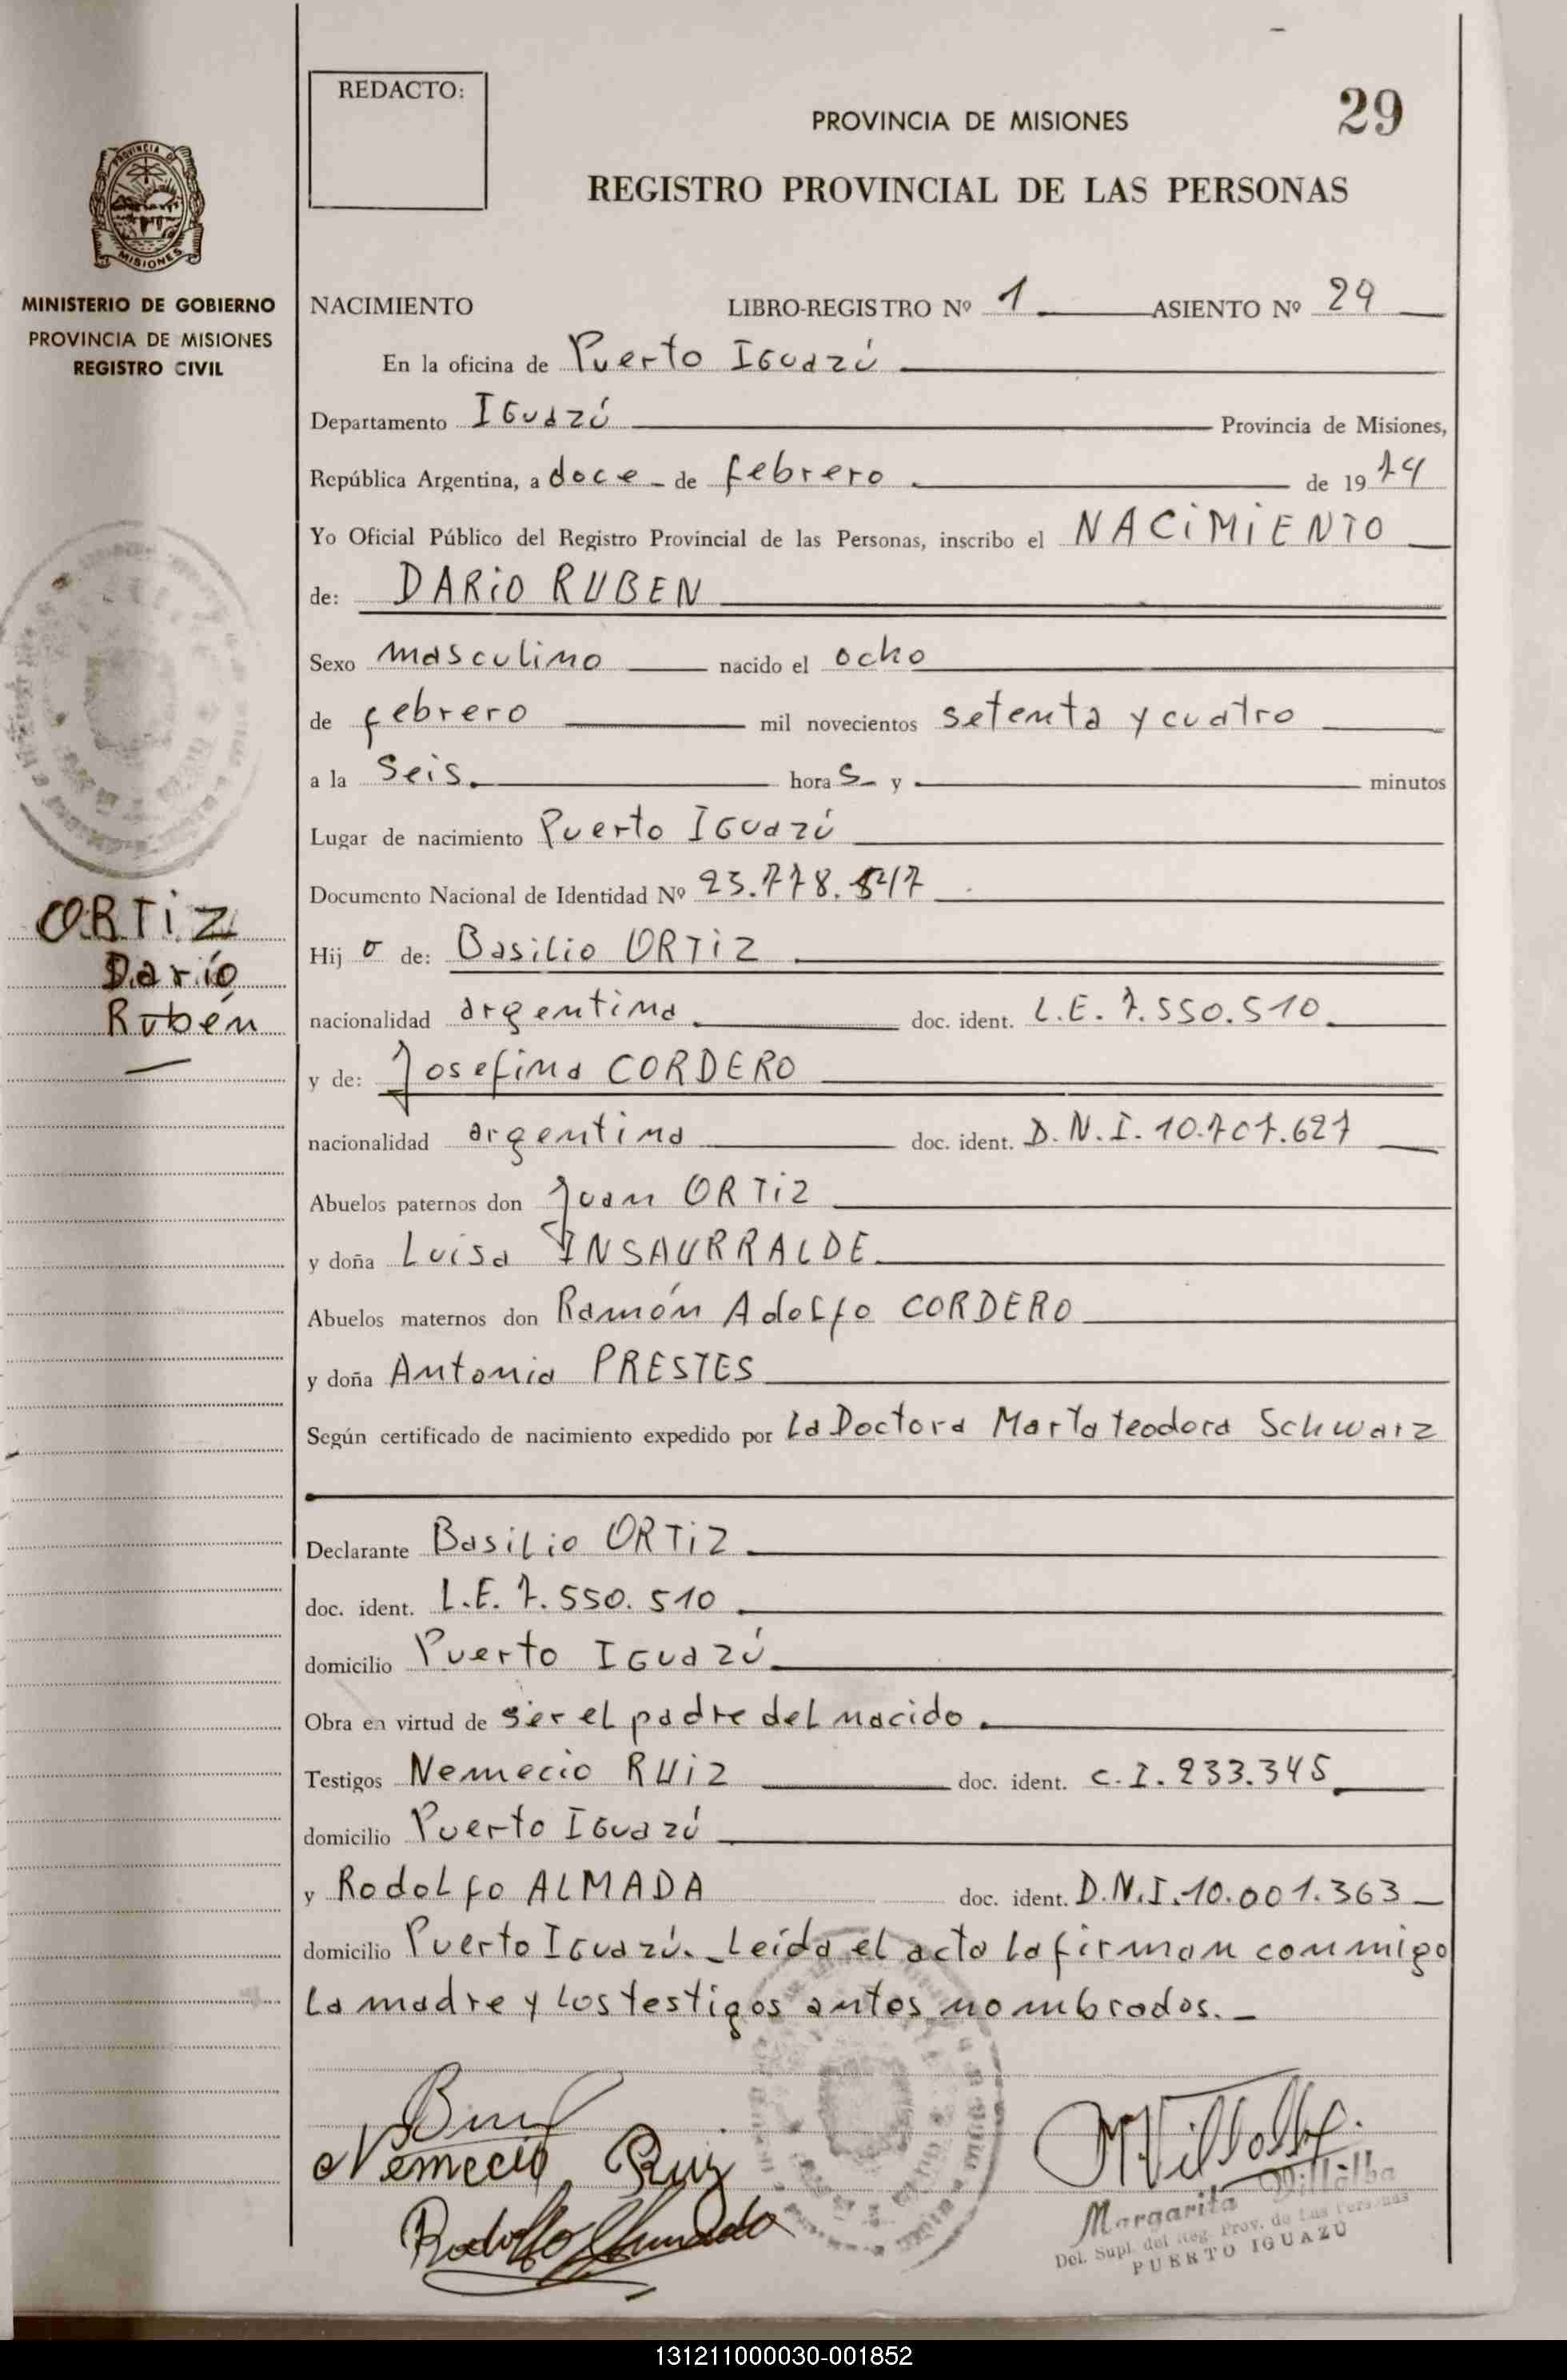 REDACTO:
PROVINCIA DE MISIONES
29
REGISTRO PROVINCIAL DE LAS PERSONAS
PROVINCIA DE
MISIONES
MINISTERIO DE GOBIERNO
PROVINCIA DE MISIONES
REGISTRO CIVIL
NACIMIENTO LIBRO-REGISTRO Nº 1 ASIENTO Nº 29
En la oficina de Puerto IGuazú
Departamento IGuazú Provincia de Misiones,
República Argentina, a doce de febrero de 1974
Yo Oficial Público del Registro Provincial de las Personas, inscribo el NACiMiENTO
de: DARiO RUBEN
Sexo masculino nacido el ocho
de febrero mil novecientos setenta y cuatro
a la Seis. horas y minutos
Lugar de nacimiento Puerto IGuazú
Documento Nacional de Identidad Nº 23.778.
ORTiZ
Darío
Rubén
Hijo de: Basilio ORTiZ
nacionalidad argentina doc. ident. L.E. 7.550.510
y de: Josefina CORDERO
nacionalidad argentina doc. ident. D.N.I. 10.707.627
Abuelos paternos don Juan ORTiZ
y doña Luisa INSAURRALDE
Abuelos maternos don Ramón Adolfo CORDERO
y doña Antonia PRESTES
Según certificado de nacimiento expedido por La Doctora Marta teodora Schwarz
Declarante Basilio ORTiZ
doc. ident. L.E. 7.550.510
domicilio Puerto IGuazú
Obra en virtud de ser el padre del nacido.
Testigos Nemecio RUiZ doc. ident. C.I. 233.345
domicilio Puerto IGuazú
y Rodolfo ALMADA doc. ident. D.N.I. 10.001.363
domicilio Puerto IGuazú. Leída el acta la firman conmigo
la madre y los testigos antes nombrados.
Nemecio Ruiz
Rodolfo Almada
MVillalba
Margarita Villalba
Del. Supl. del Reg. Prov. de las Personas
PUERTO IGUAZU
131211000030-001852